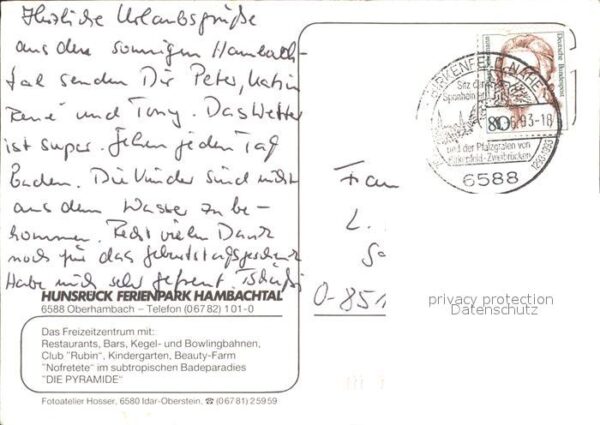 Herzliche Urlaubsgrüße
aus dem sonnigen Hambach-
tal senden Dir Peter, Katrin
René und Tony. Das Wetter
ist super. Gehen jeden Tag
Baden. Die Kinder sind nicht
aus dem Wasser zu be-
kommen. Recht vielen Dank
noch für das Geburtstagsgeschenk
Habe mich sehr gefreut. Tschüßi
HUNSRÜCK FERIENPARK HAMBACHTAL
6588 Oberhambach – Telefon (0 67 82) 1 01-0
Das Freizeitzentrum mit:
Restaurants, Bars, Kegel- und Bowlingbahnen,
Club "Rubin", Kindergarten, Beauty-Farm
"Nofretete" im subtropischen Badeparadies
"DIE PYRAMIDE"
Fotoatelier Hosser, 6580 Idar-Oberstein, ☎ (0 67 81) 2 59 59
BIRKENFELD, NAHE
Sitz der
Sponheim
80
6.93-18
und der Pfalzgrafen von
Birkenfeld-Zweibrücken
6588
Deutsche Bundespost
Frau
L.
O-851
privacy protection
Datenschutz